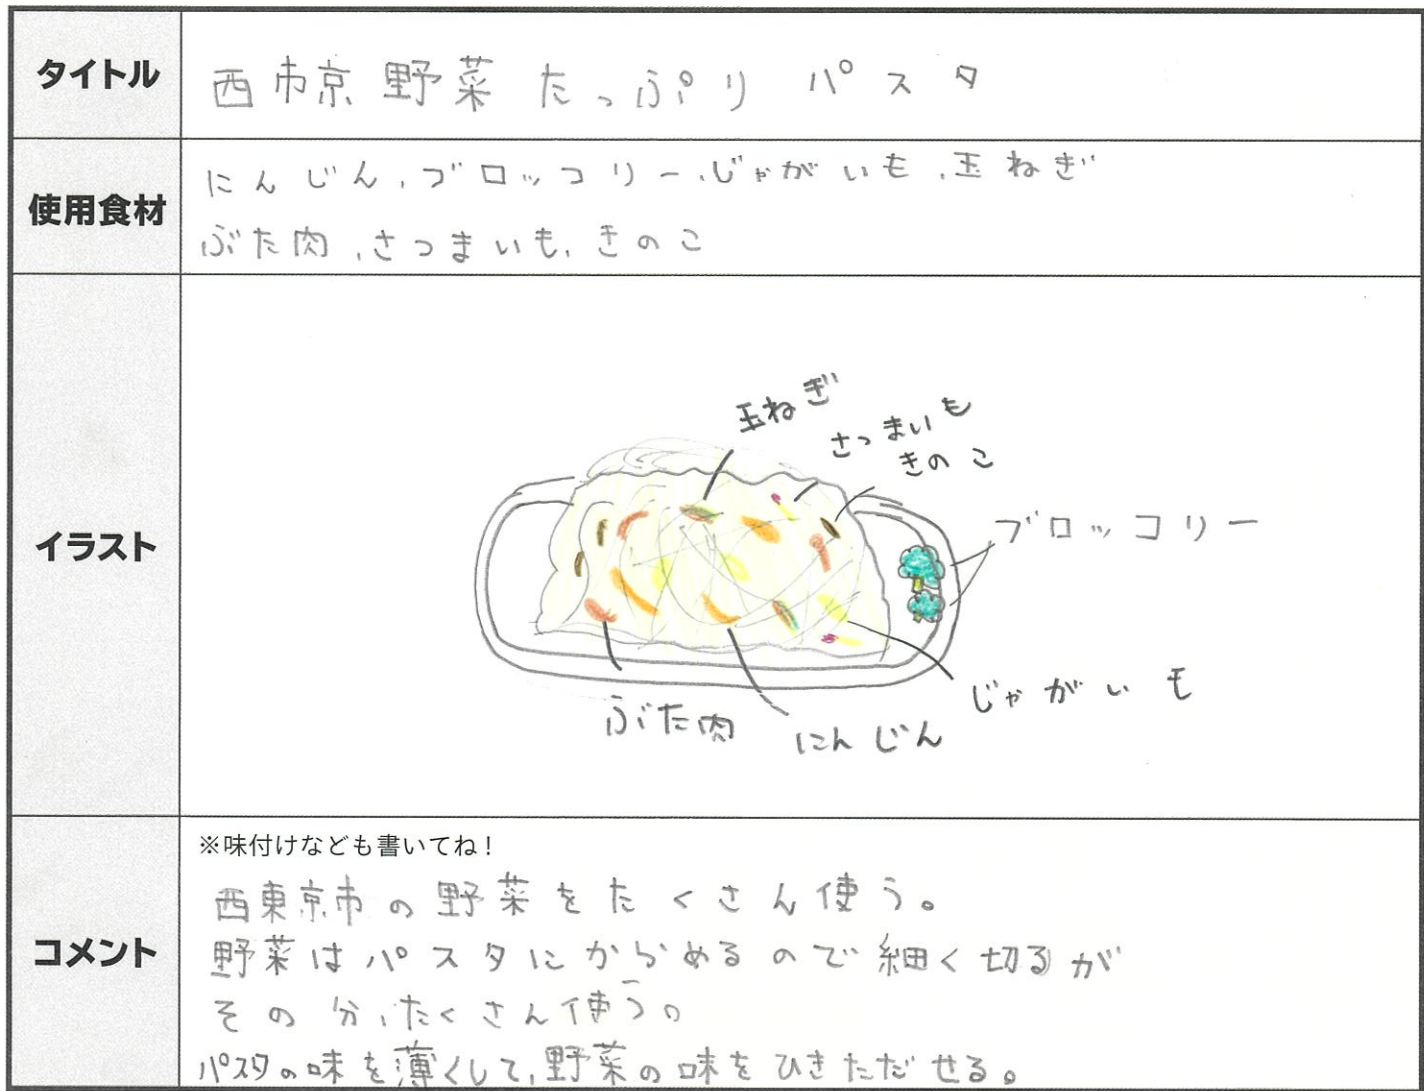 タイトル
西市京野菜たっぷりパスタ
使用食材
にんじん、ブロッコリー、じゃがいも、玉ねぎ
ぶた肉、さつまいも、きのこ
イラスト
玉ねぎ
さつまいも
きのこ
ブロッコリー
じゃがいも
ぶた肉
にんじん
コメント
※味付けなども書いてね！
西東京市の野菜をたくさん使う。
野菜はパスタにからめるので細く切るが
その分、たくさん使う。
パスタの味を薄くして、野菜の味をひきただせる。